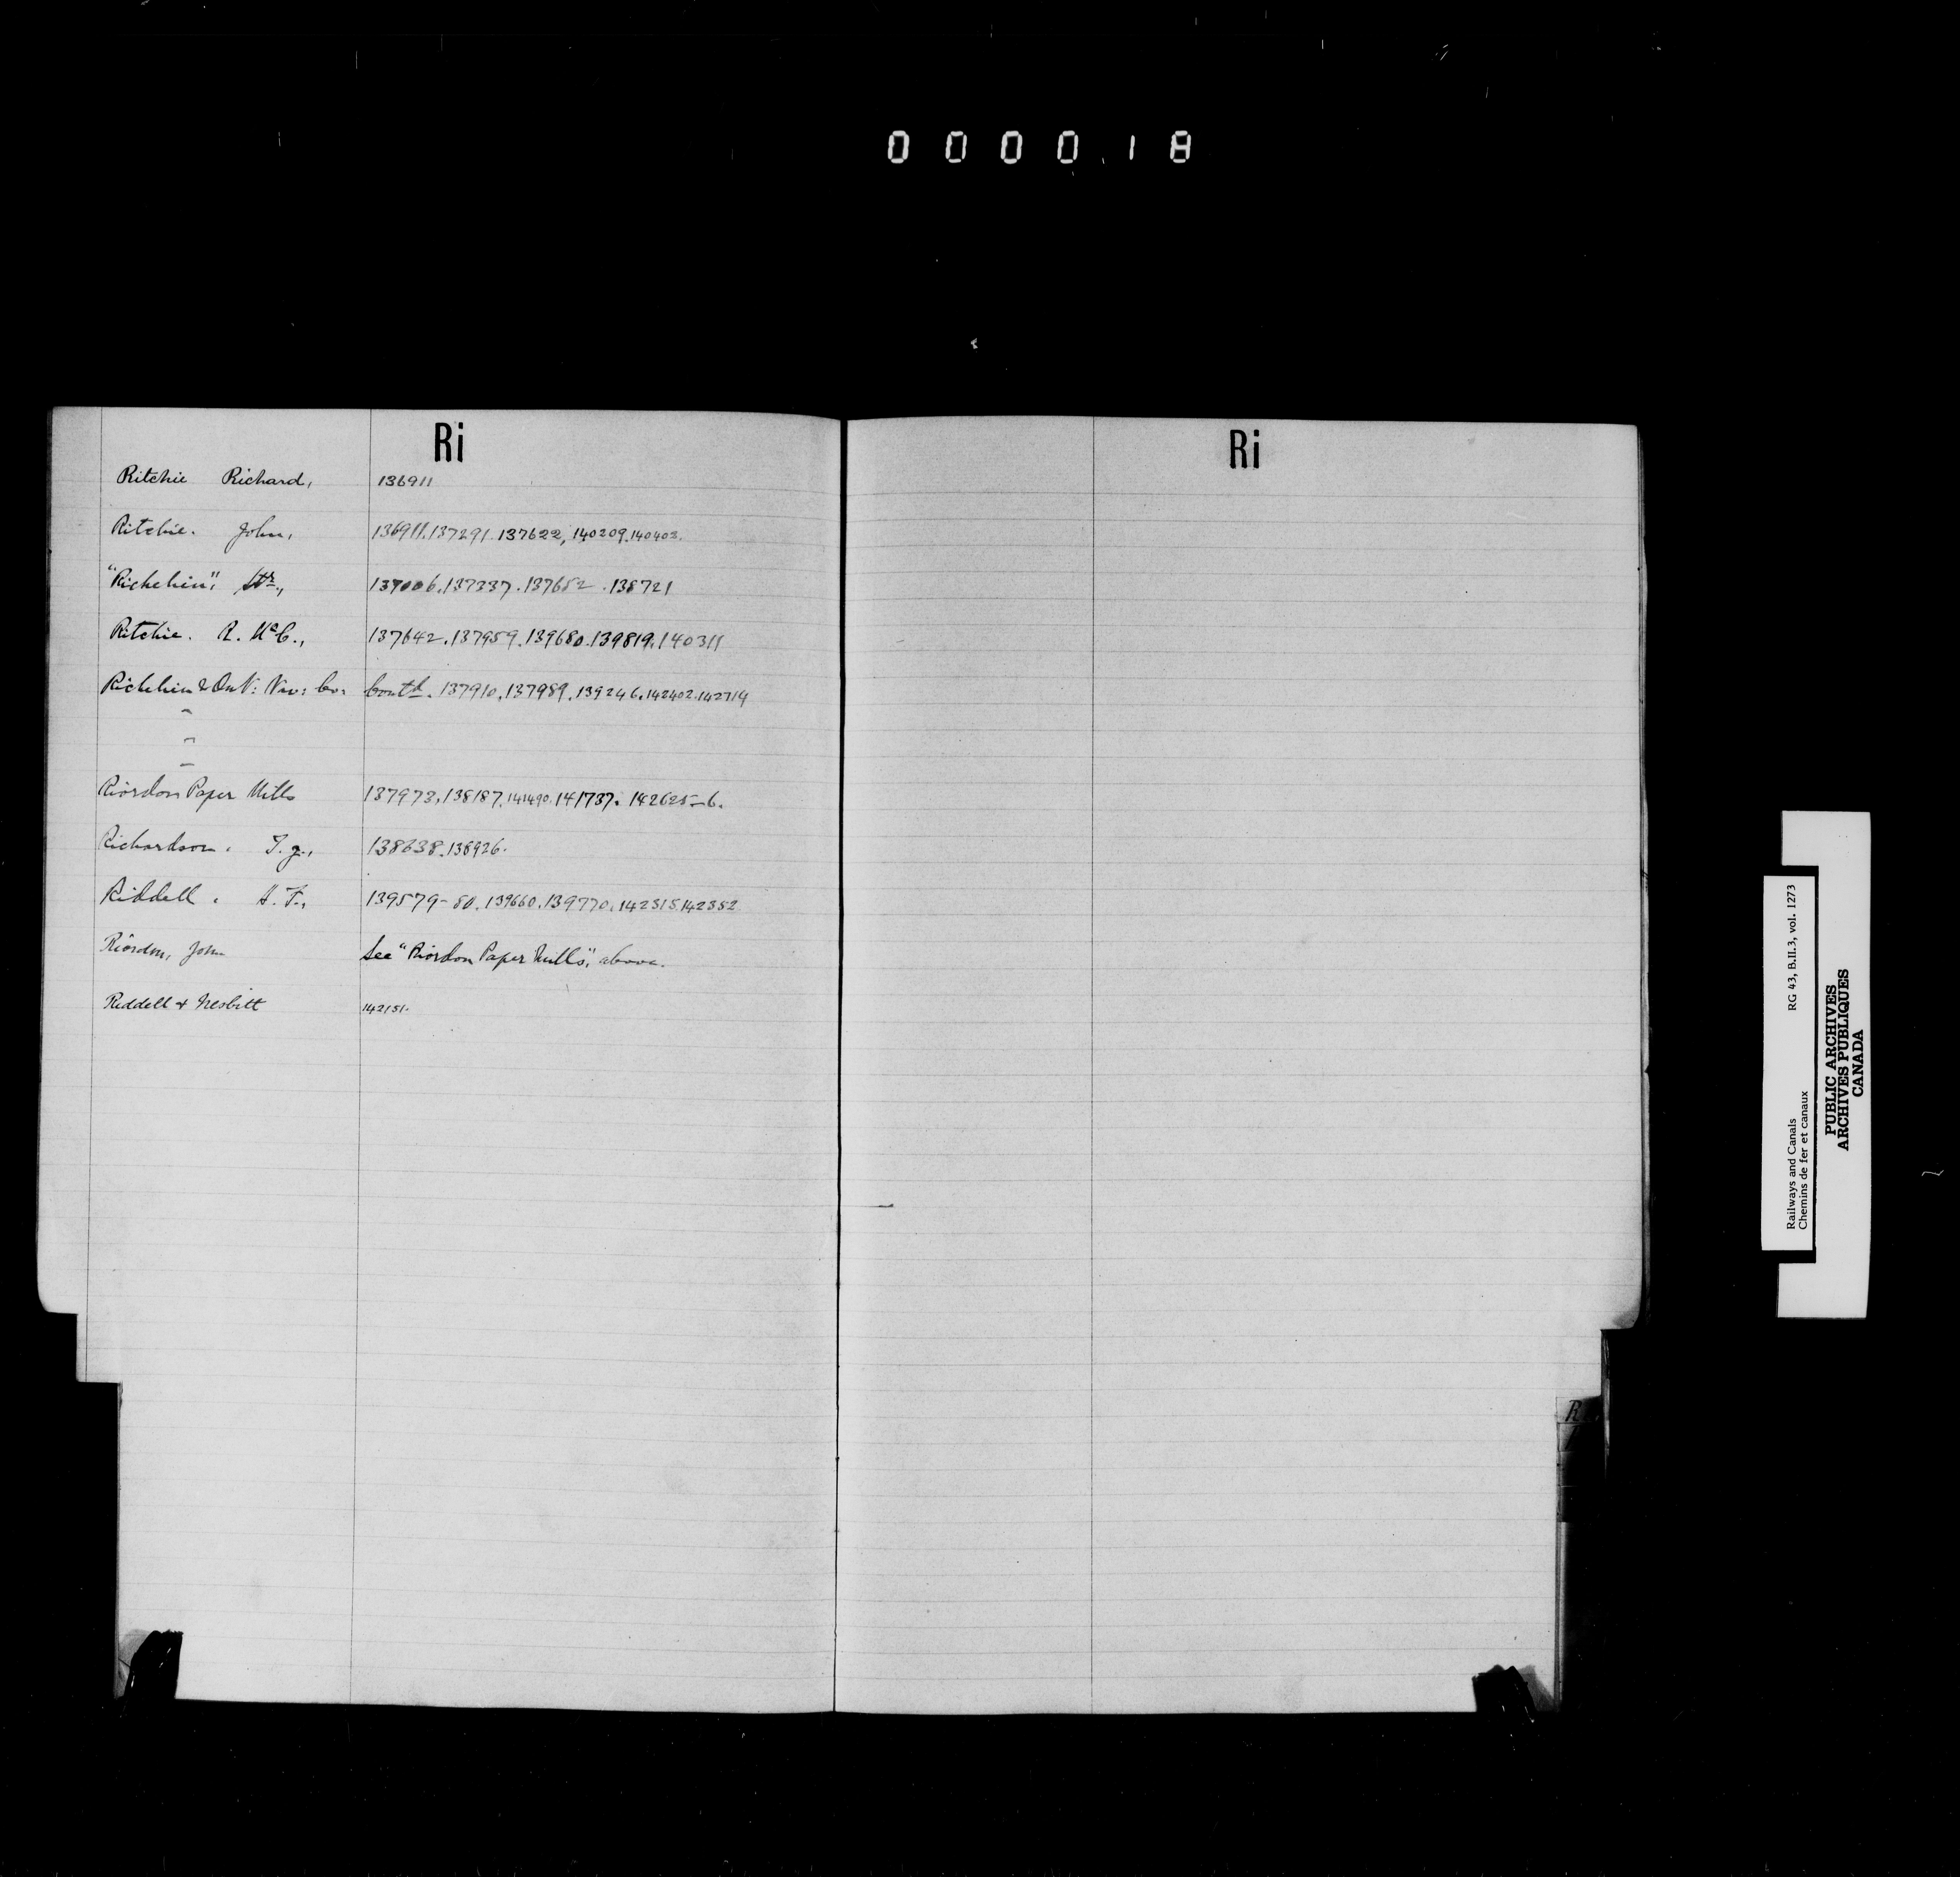 0 0 0 0 1 8
Ri
Ritchie Richard, 136911
Ritchie. John, 136911.137291.137622, 140209.140403.
"Richelieu", Str., 137006.137337.137652.138721
Ritchie. R. McC., 137642.137959.139680.139819.140311
Richelieu & Ont: Nav: Co: Contd. 137910.137989.139246.142402.142714
"
"
"
Riordon Paper Mills 137973.138187.141490.141737. 142625-6.
Richardson. T.g., 138638.138926.
Riddell. H.F., 139579-80.139660.139770.142315.142352
Riordon, John See "Riordon Paper Mills", above.
Riddell & Nesbitt 142151.
Ri
R
Railways and Canals RG 43, B.II.3, vol. 1273
Chemins de fer et canaux
PUBLIC ARCHIVES
ARCHIVES PUBLIQUES
CANADA